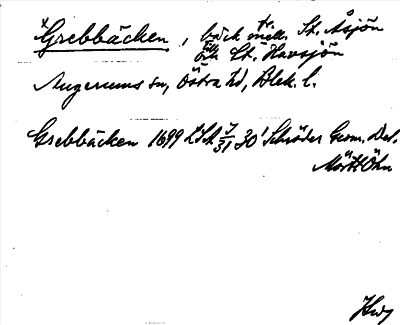 ×Grebbäcken, bäck fr. mell. St. Åsjön
till och L:t. Havsjön
Augerums sn, Östra hd, Blek. l.
Grebbäcken 1699 LSA 7/31 30¹ Schröder Geom. Del.
Mörtt Öhn